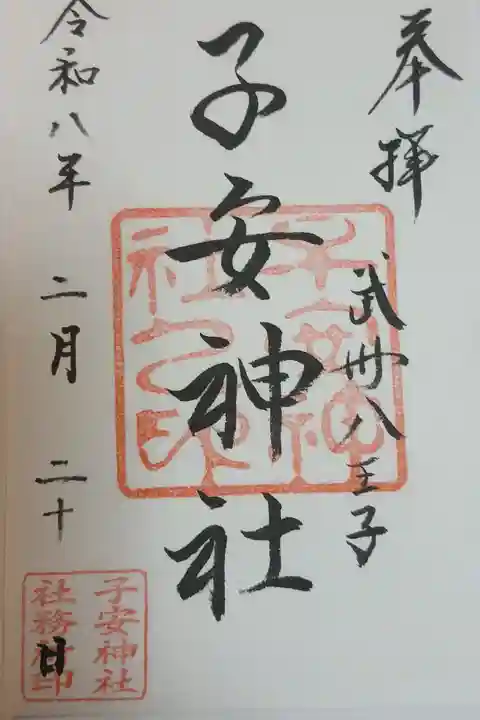 奉拝
武州八王子
子安神社
子安神社之印
令和八年 二月 二十日
子安神社
社務所印